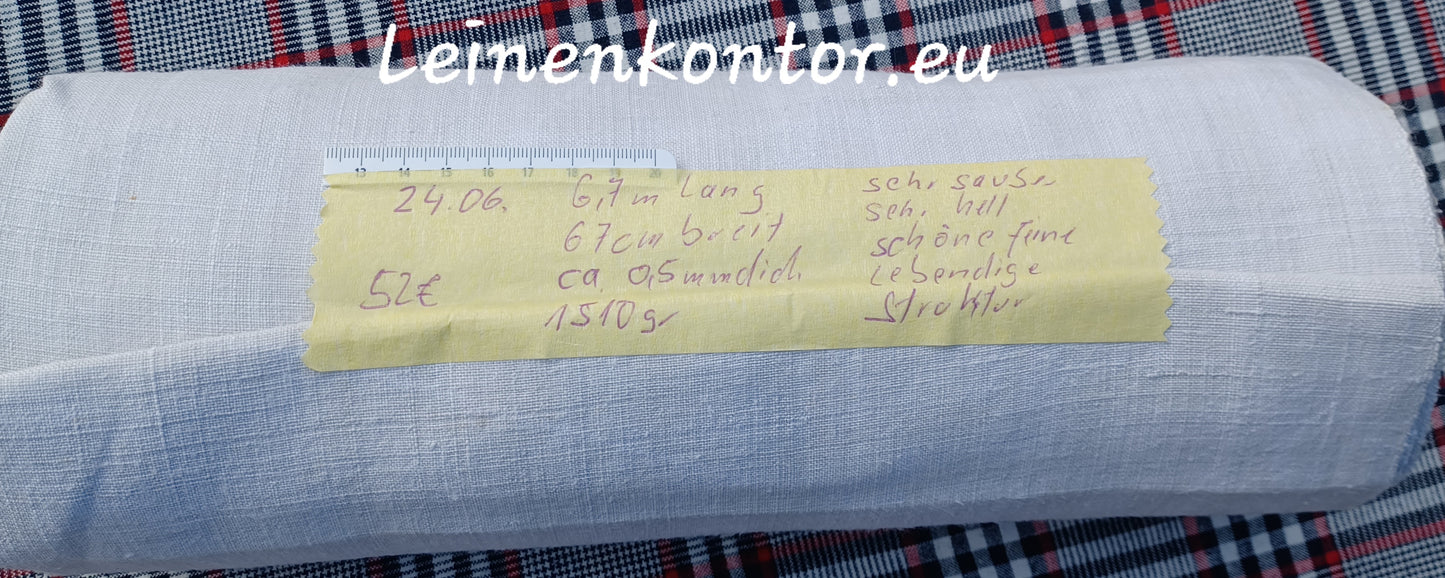 Leinenkontor.eu
13 14 15 16 17 18 19 20
24.06.
52€
6,7m lang
67cm breit
ca. 0,5mm dick
1510gr
sehr sauber
sehr hell
schöne feine
lebendige
Struktur